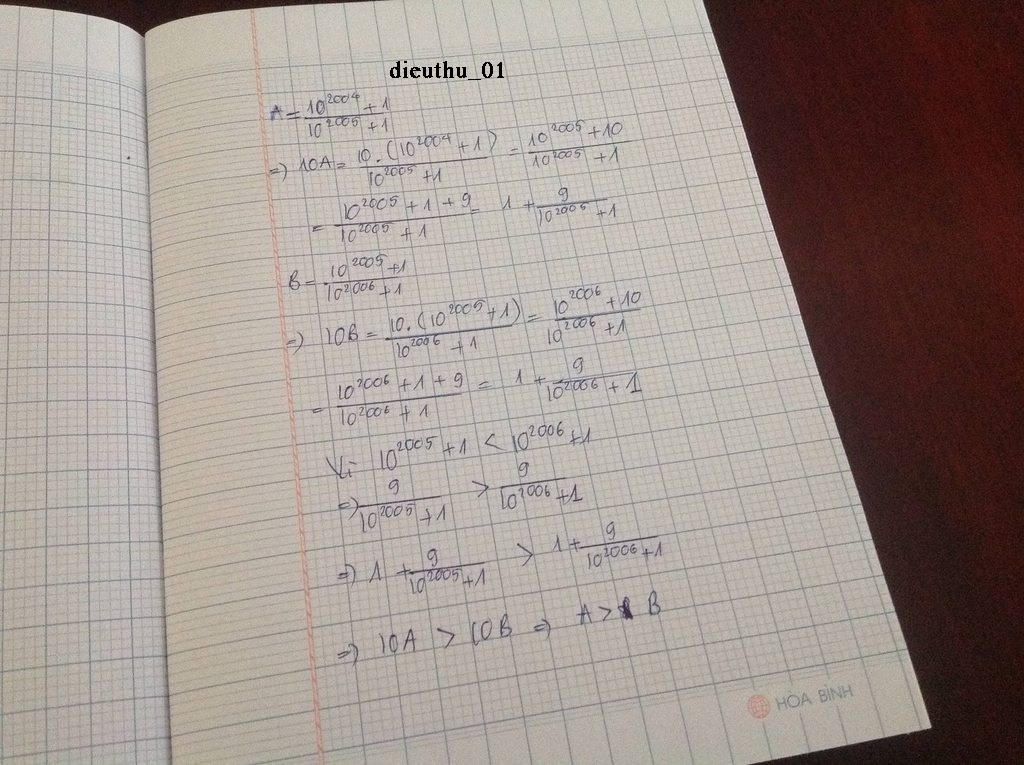 dieuthu_01
A = \frac{10^{2004} + 1}{10^{2005} + 1}
=) 10A = \frac{10.(10^{2004} + 1)}{10^{2005} + 1} = \frac{10^{2005} + 10}{10^{2005} + 1}
= \frac{10^{2005} + 1 + 9}{10^{2005} + 1} = 1 + \frac{9}{10^{2005} + 1}
B = \frac{10^{2005} + 1}{10^{2006} + 1}
=) 10B = \frac{10.(10^{2005} + 1)}{10^{2006} + 1} = \frac{10^{2006} + 10}{10^{2006} + 1}
= \frac{10^{2006} + 1 + 9}{10^{2006} + 1} = 1 + \frac{9}{10^{2006} + 1}
Vì 10^{2005} + 1 < 10^{2006} + 1
=) \frac{9}{10^{2005} + 1} > \frac{9}{10^{2006} + 1}
=) 1 + \frac{9}{10^{2005} + 1} > 1 + \frac{9}{10^{2006} + 1}
=) 10A > 10B =) A > B
HÒA BÌNH